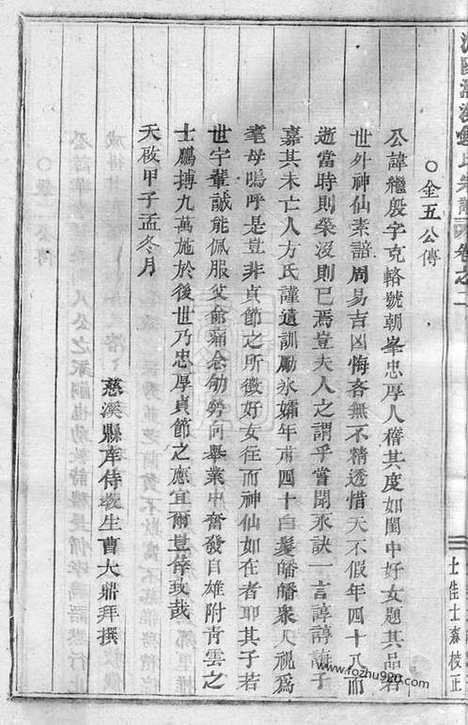 ○全五公傳
公諱繼殷字克輅號朝峯忠厚人稽其度如閨中好女題其品若
世外神仙素諳周易吉凶悔吝無不精透惜天不假年四十八而
逝當時則榮沒則已焉豈夫人之謂乎嘗聞永訣一言諄諄誨子
嘉其未亡人方氏謹遺訓勵永孀年甫四十白髮皤皤衆尺視爲
耄母嗚呼是豈非貞節之所徵好女往而神仙如在者耶其子若
世字輩誠能佩服父命痛念劬勞向舉業中奮發自雄附青雲之
士鵬摶九萬施於後世乃忠厚貞節之應宜爾豈倖致哉
天啟甲子孟冬月
慈溪縣庠侍教生曹大鼎拜撰
氏宗譜 卷之二
士佳士嘉校正
www.fozhu920.com